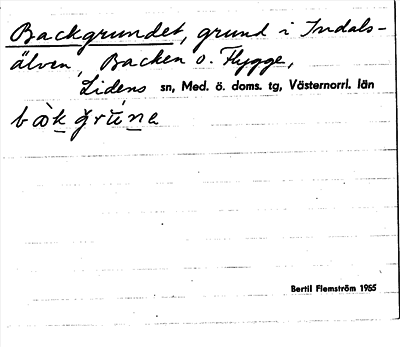 Backgrundet, grund i Indals-
älven, Backen o. Flygge,
Lidens sn, Med. ö. doms. tg, Västernorrl. län
Bertil Flemström 1965